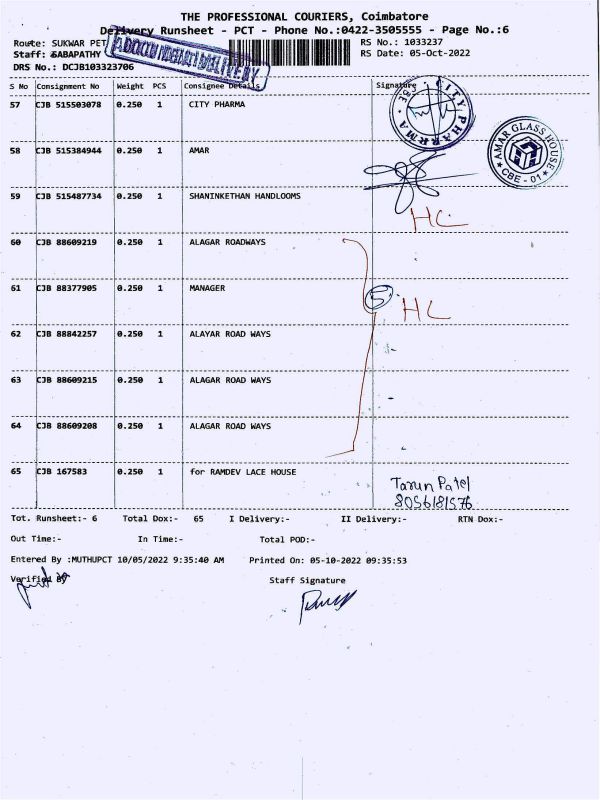 THE PROFESSIONAL COURIERS, Coimbatore
Delivery Runsheet - PCT - Phone No.:0422-3505555 - Page No.:6
Route: SUKWAR PET
RS No.: 1033237
Staff: SABAPATHY
RS Date: 05-Oct-2022
DRS No.: DCJB103323706
DELIVERY
S No Consignment No Weight PCS Consignee Details Signature
57 CJB 515503078 0.250 1 CITY PHARMA
CITY PHARMA
58 CJB 515384944 0.250 1 AMAR
AMAR GLASS HOUSE
CBE - 01
59 CJB 515487734 0.250 1 SHANINKETHAN HANDLOOMS
HC
60 CJB 88609219 0.250 1 ALAGAR ROADWAYS
61 CJB 88377905 0.250 1 MANAGER
5 HL
62 CJB 88842257 0.250 1 ALAYAR ROAD WAYS
63 CJB 88609215 0.250 1 ALAGAR ROAD WAYS
64 CJB 88609208 0.250 1 ALAGAR ROAD WAYS
65 CJB 167583 0.250 1 for RAMDEV LACE HOUSE
Tarun Patel
8056181576
Tot. Runsheet:- 6 Total Dox:- 65 I Delivery:- II Delivery:- RTN Dox:-
Out Time:- In Time:- Total POD:-
Entered By :MUTHUPCT 10/05/2022 9:35:40 AM Printed On: 05-10-2022 09:35:53
Verified By Staff Signature